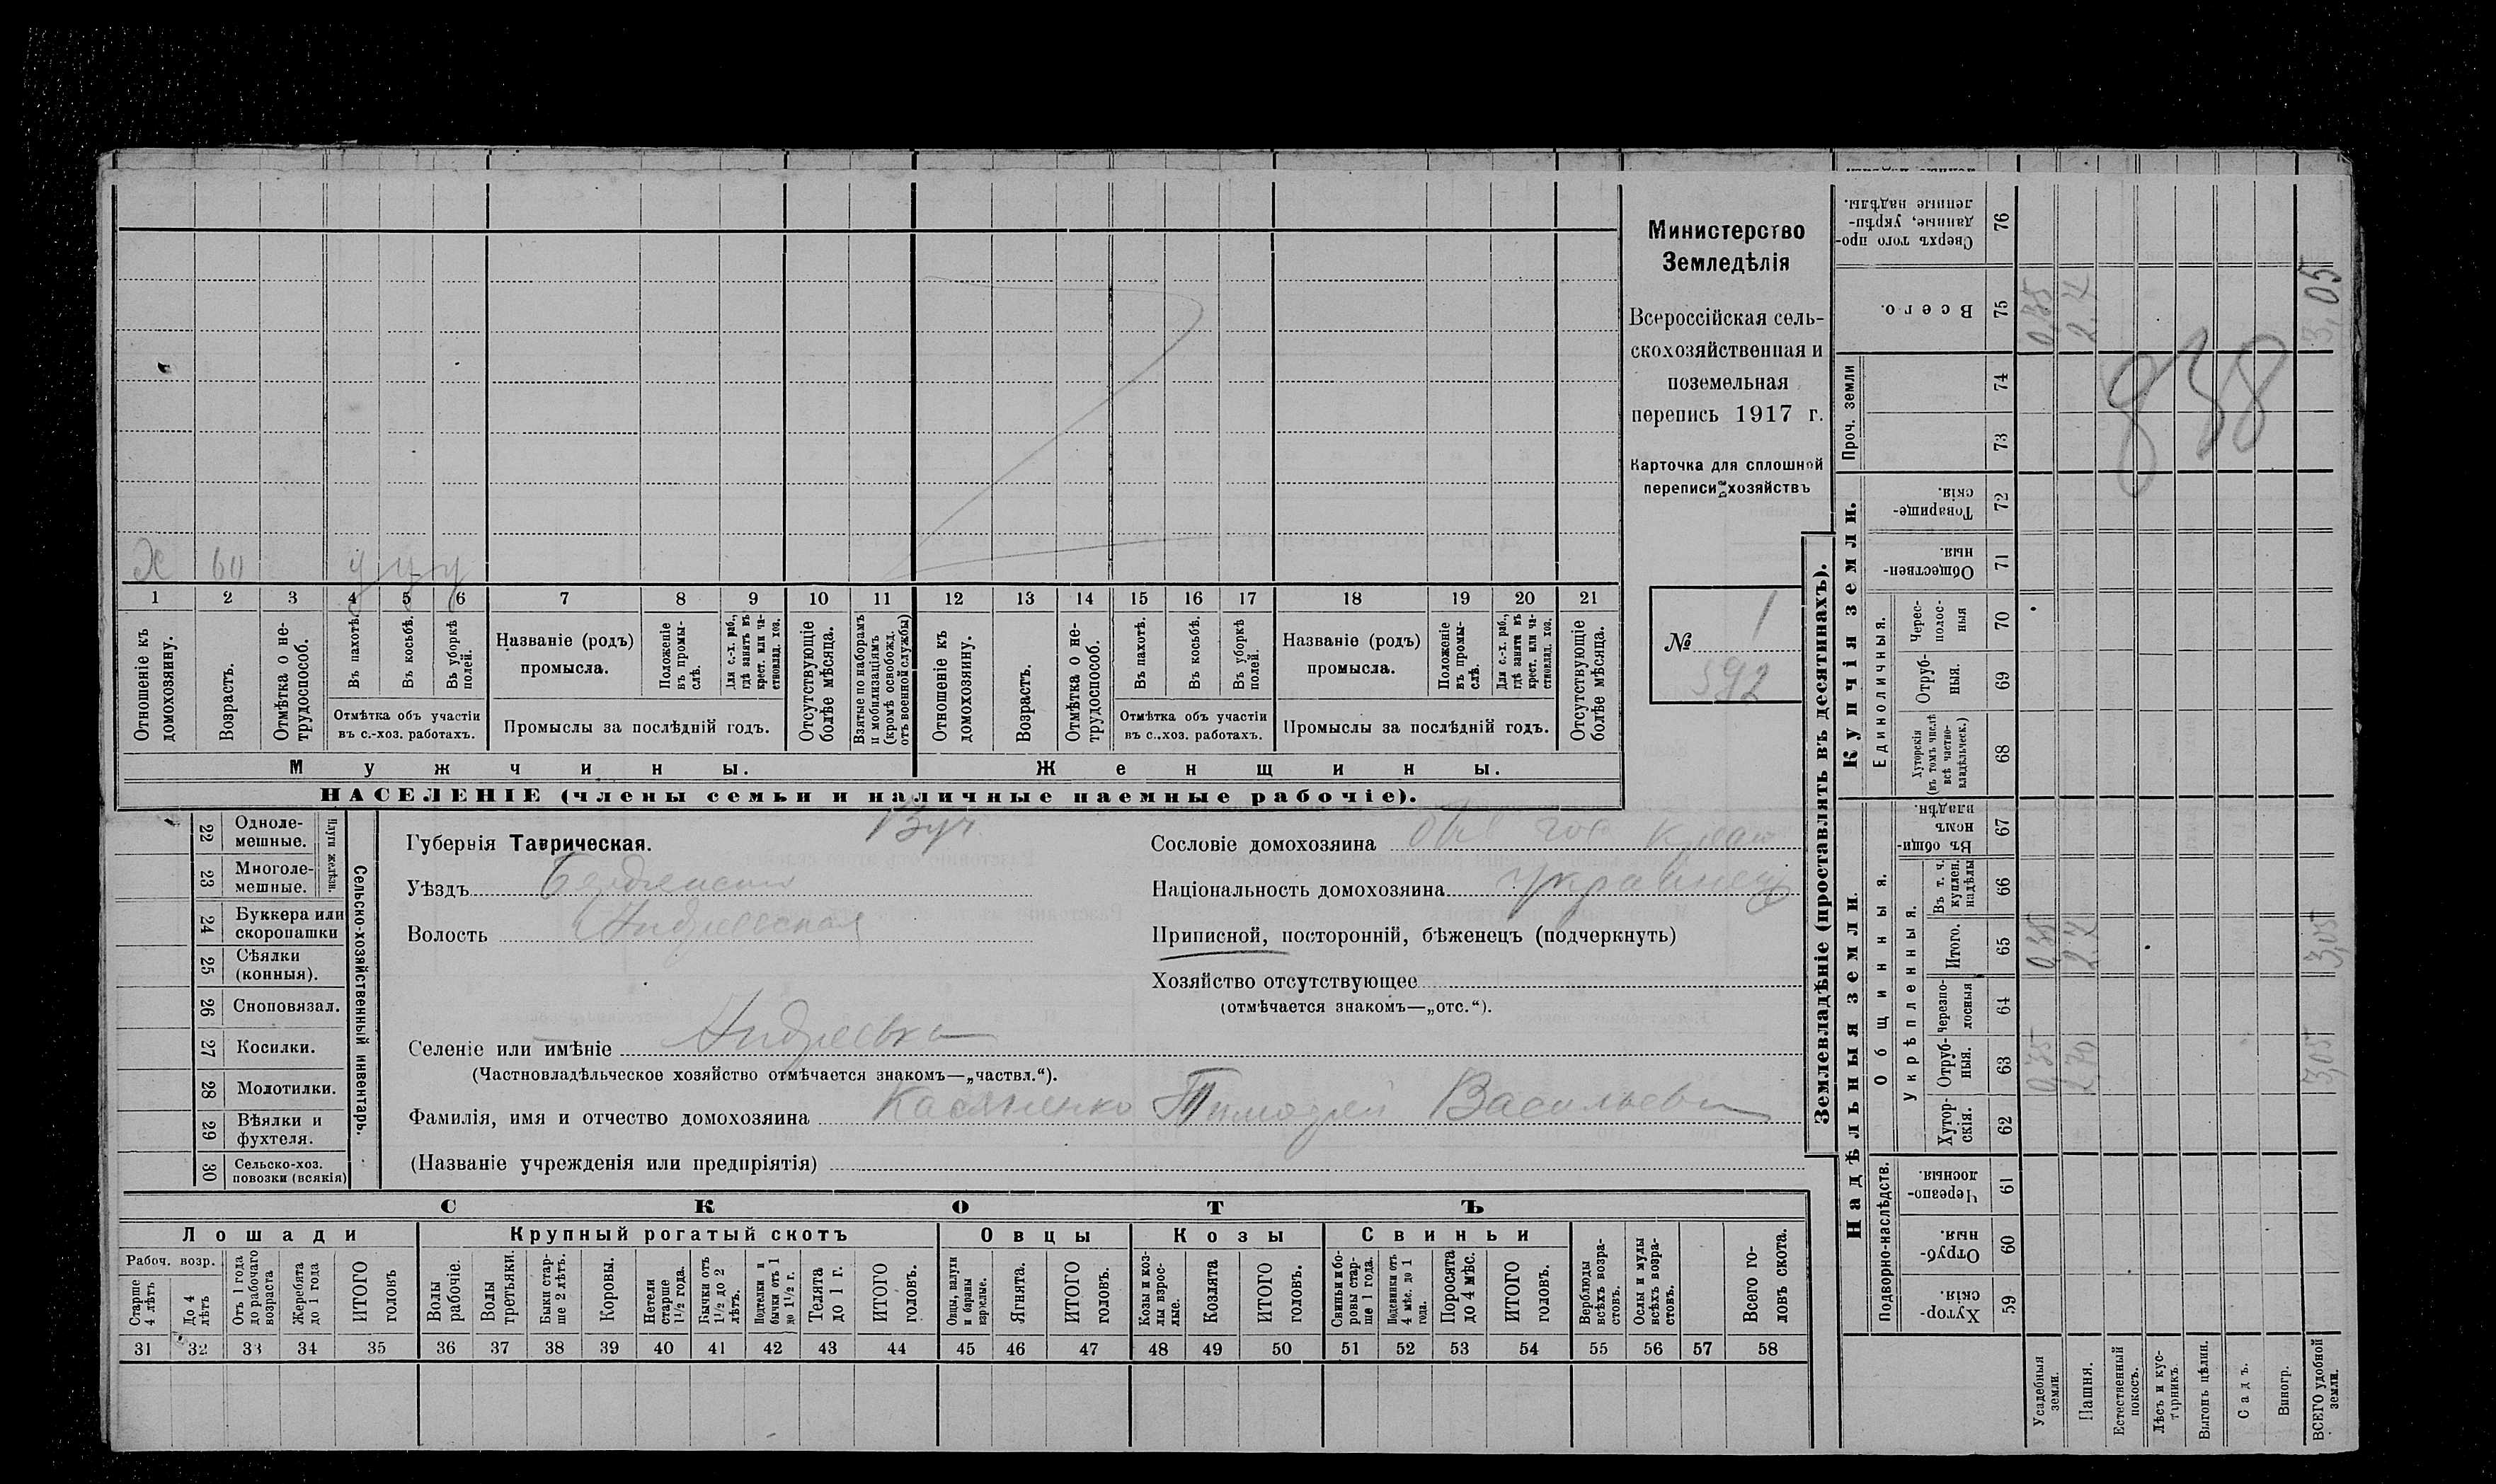 Министерство
Земледѣлія
Всероссійская сель-
скохозяйственная и
поземельная
перепись 1917 г.
Карточка для сплошной
переписи хозяйствъ
№ 1
592
х 60 у у у
1 2 3 4 5 6 7 8 9 10 11 12 13 14 15 16 17 18 19 20 21
Отношеніе къ домохозяину.
Возрастъ.
Отмѣтка о не-трудоспособ.
Въ пахотѣ.
Въ косьбѣ.
Въ уборкѣ полей.
Отмѣтка объ участіи
въ с.-хоз. работахъ.
Названіе (родъ)
промысла.
Положеніе въ промы-слѣ.
Для с.-х. раб., гдѣ занятъ въ крест. или ча-стновлад. хоз.
Промыслы за послѣдній годъ.
Отсутствующіе болѣе мѣсяца.
Взятые по наборамъ и мобилизаціямъ (кромѣ освобожд. отъ военной службы)
Отношеніе къ домохозяину.
Возрастъ.
Отмѣтка о не-трудоспособ.
Въ пахотѣ.
Въ косьбѣ.
Въ уборкѣ полей.
Отмѣтка объ участіи
въ с.-хоз. работахъ.
Названіе (родъ)
промысла.
Положеніе въ промы-слѣ.
Для с.-х. раб., гдѣ занята въ крест. или ча-стновлад. хоз.
Промыслы за послѣдній годъ.
Отсутствующіе болѣе мѣсяца.
Мужчины. Женщины.
НАСЕЛЕНІЕ (члены семьи и наличные наемные рабочіе).
22 Одноле-мешные.
23 Многоле-мешные.
Плуги желѣзн.
24 Буккера или скоропашки
25 Сѣялки (конныя).
26 Сноповязал.
27 Косилки.
28 Молотилки.
29 Вѣялки и фухтеля.
30 Сельско-хоз. повозки (всякія)
Сельско-хозяйственный инвентарь.
Губернія Таврическая.
Уѣздъ Бердянскій
Волость Андреевская
Сословіе домохозяина
Національность домохозяина украинец
Приписной, посторонній, бѣженецъ (подчеркнуть)
Хозяйство отсутствующее
(отмѣчается знакомъ—„отс.“).
Селеніе или имѣніе Андреевка
(Частновладѣльческое хозяйство отмѣчается знакомъ—„частвл.“).
Фамилія, имя и отчество домохозяина Касяненко Тимофей Васильевич
(Названіе учрежденія или предпріятія)
СКОТЪ
Лошади Крупный рогатый скотъ Овцы Козы Свиньи
Рабоч. возр.
Старше 4 лѣтъ
До 4 лѣтъ
Отъ 1 года до рабочаго возраста
Жеребята до 1 года
ИТОГО головъ
Волы рабочіе.
Волы третьяки.
Быки стар-ше 2 лѣтъ.
Коровы.
Нетели старше 1 1/2 года.
Бычки отъ 1 1/2 до 2 лѣтъ.
Подтелки и бычки отъ 1 до 1 1/2 г.
Телята до 1 г.
ИТОГО головъ.
Овцы, валухи и бараны взрослые.
Ягнята.
ИТОГО головъ.
Козы и коз-лы взрос-лые.
Козлята
ИТОГО головъ.
Свиньи и бо-ровы стар-ше 1 года.
Подсвинки отъ 4 мѣс. до 1 года.
Поросята до 4 мѣс.
ИТОГО головъ.
Верблюды всѣхъ возра-стовъ.
Ослы и мулы всѣхъ возра-стовъ.
Всего го-ловъ скота.
31 32 33 34 35 36 37 38 39 40 41 42 43 44 45 46 47 48 49 50 51 52 53 54 55 56 57 58
Землевладѣніе (проставлять въ десятинахъ).
Купчія земли.
Надѣльныя земли.
Сверхъ того про-данные, укрѣп-ленные надѣлы. 76
Всего. 75 0,35 2,7 3,05
Проч. земли 74 73
838
Товарище-скія. 72
Обществен-ныя. 71
Единоличныя.
Черес-полос-ныя 70
Отруб-ныя. 69
Хуторскія (въ томъ числѣ всѣ частно-владѣльческ.) 68
Общинныя.
Въ общи-номъ владѣн. 67
Укрѣпленныя.
Въ т. ч. куплен. надѣлы 66
Итого. 65 0,35 2,7 3,05
Черезпо-лосныя 64
Отруб-ныя. 63 0,35 2,70 3,05
Хутор-скія. 62
Подворно-наслѣдств.
Черезпо-лосныя. 61
Отруб-ныя 60
Хутор-скія. 59
Усадебныя земли.
Пашня.
Естественный покосъ.
Лѣсъ и кус-тарникъ.
Выгонъ цѣлин.
Садъ.
Виногр.
ВСЕГО удобной земли.